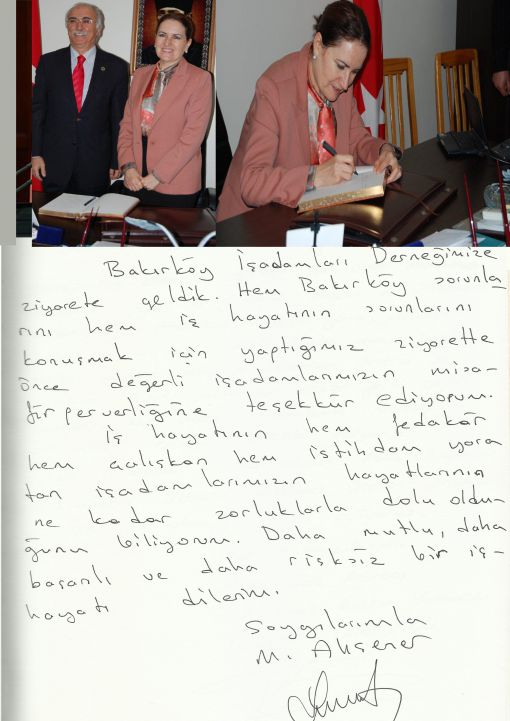 Bakırköy İşadamları Derneğimize
ziyarete geldik. Hem Bakırköy sorunla
rını hem iş hayatının sorunlarını
konuşmak için yaptığımız ziyarette
önce değerli işadamlarımızın misa-
firperverliğine teşekkür ediyorum.
İş hayatının hem fedakâr
hem çalışkan hem istihdam yara
tan işadamlarımızın hayatlarının
ne kadar zorluklarla dolu oldu-
ğunu biliyorum. Daha mutlu, daha
başarılı ve daha risksiz bir iş-
hayatı dilerim.
Saygılarımla
M. Akşener